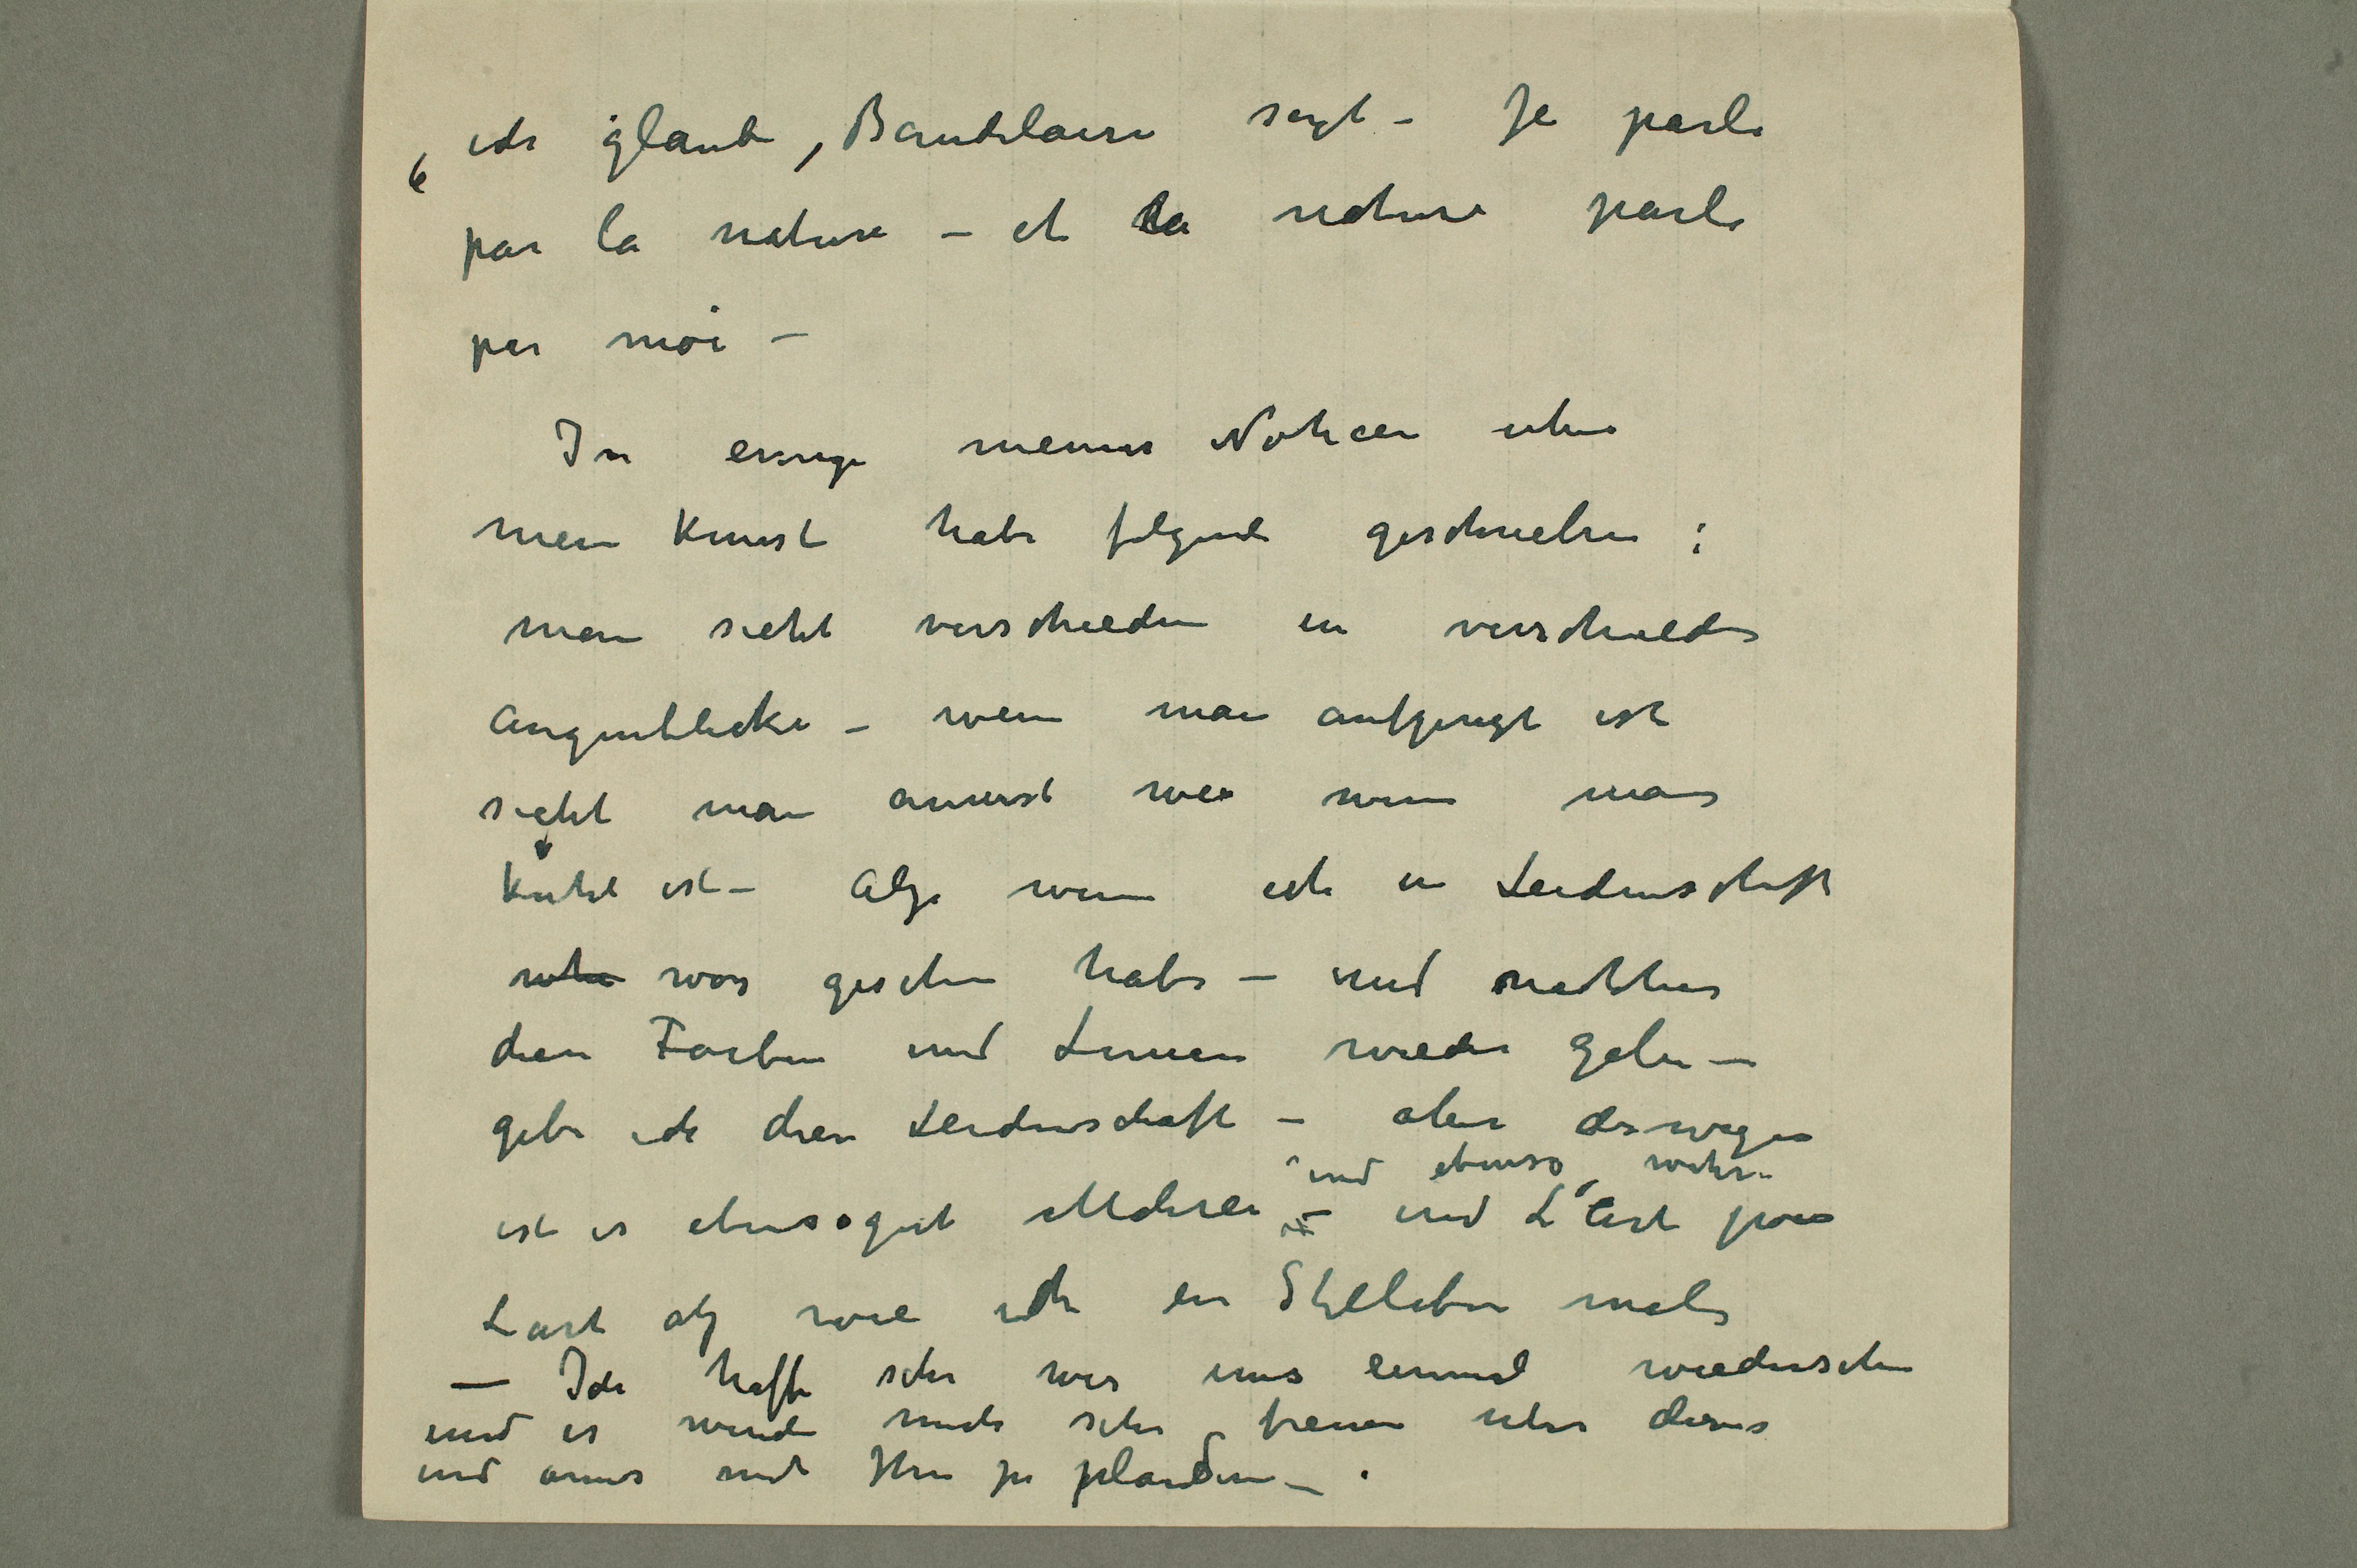 ich glaube, Baudelaire sagt – Je parle
6
par la nature – et la nature parle
par moi –
In einige meiner Noticen uber
mein Kunst habe folgende geschrieben :
man sieht verschieden in verschieden
Augenblicke – wenn man aufgeregt ist
sieht man anderst wie wenn man
kühl ist – Also wenn ich in Leidenschaft
was gesehen habe – und nachher
diese Farben und Linien wieder gebe –
gebe ich diese Leidenschaft – aber deswegen
und ebenso wahr
ist es ebensogut Malerei – und L'Art pour
Lart als wie ich ein Stilleben male
– Ich hoffe sehr wir uns einmal wiedersehen
und es wurde mich sehr freuen uber dieses
und anders mit Ihnen zu plaudern – .